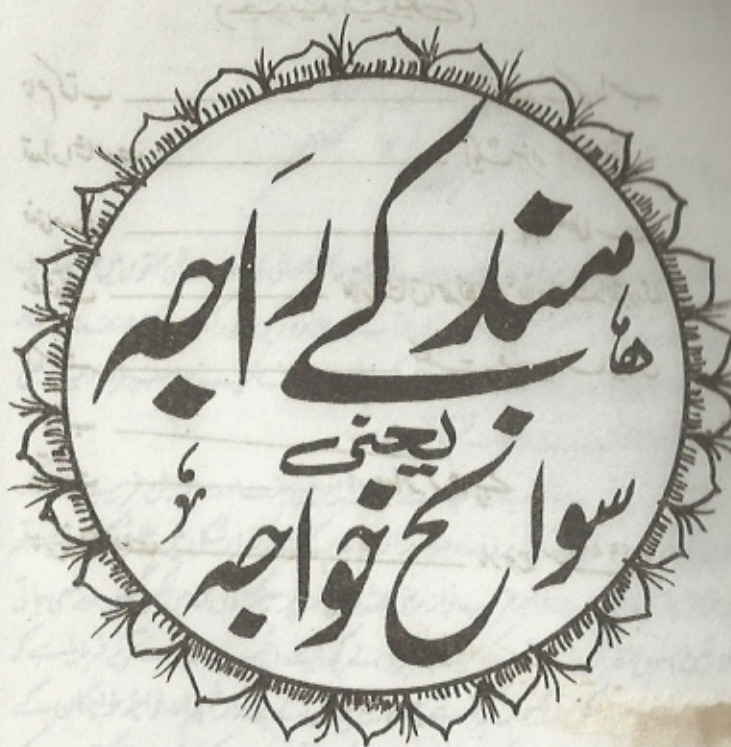 ہند کے راجہ
یعنی
سوانح خواجہ